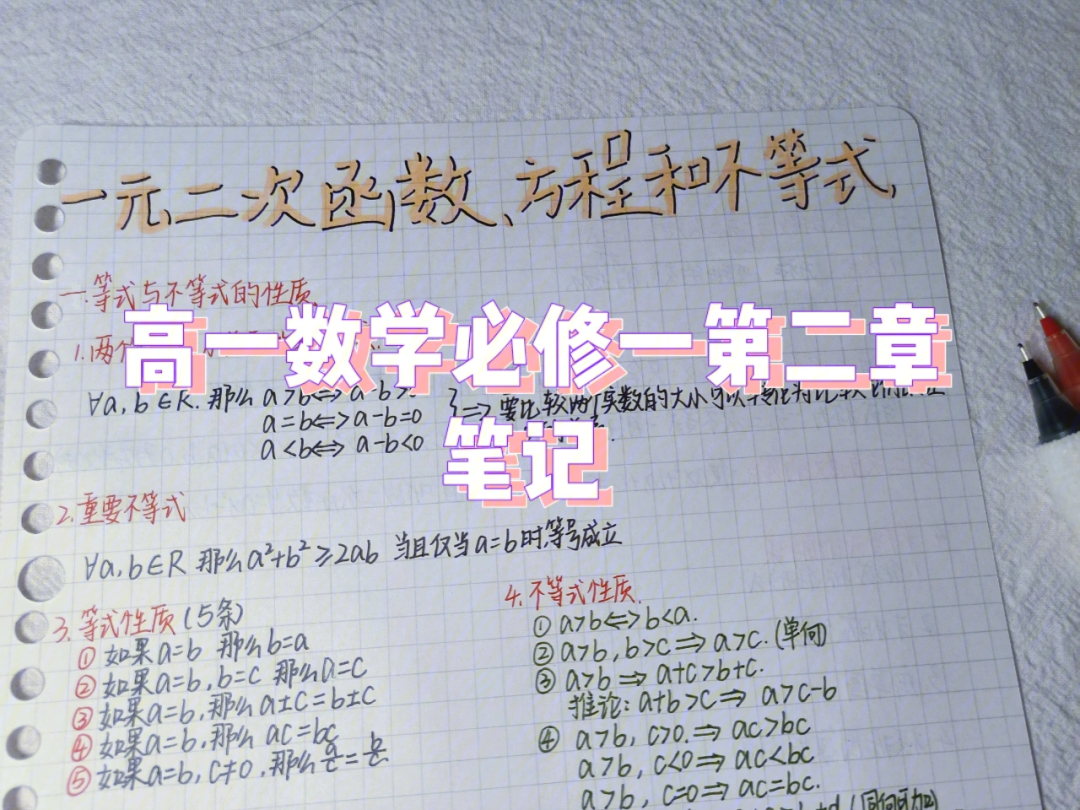 一元二次函数、方程和不等式
一.等式与不等式的性质
高一数学必修一第二章
笔记
1.两个
∀a,b∈R.那么 a>b⇔a-b>
a=b⇔a-b=0
a<b⇔a-b<0
}⇒要比较两个实数的大小可以转化为比较
2.重要不等式
∀a,b∈R 那么a²+b²≥2ab 当且仅当a=b时,等号成立
3.等式性质(5条)
① 如果a=b 那么b=a
② 如果a=b,b=c 那么a=c
③ 如果a=b,那么a±c=b±c
④ 如果a=b,那么 ac=bc
⑤ 如果a=b,c≠0,那么a/c=b/c
4.不等式性质
① a>b⇔b<a.
② a>b,b>c⇒a>c.(单向)
③ a>b⇒a+c>b+c.
推论:a+b>c⇒a>c-b
④ a>b,c>0.⇒ac>bc
a>b,c<0⇒ac<bc
a>b,c=0⇒ac=bc.
(同向可加)